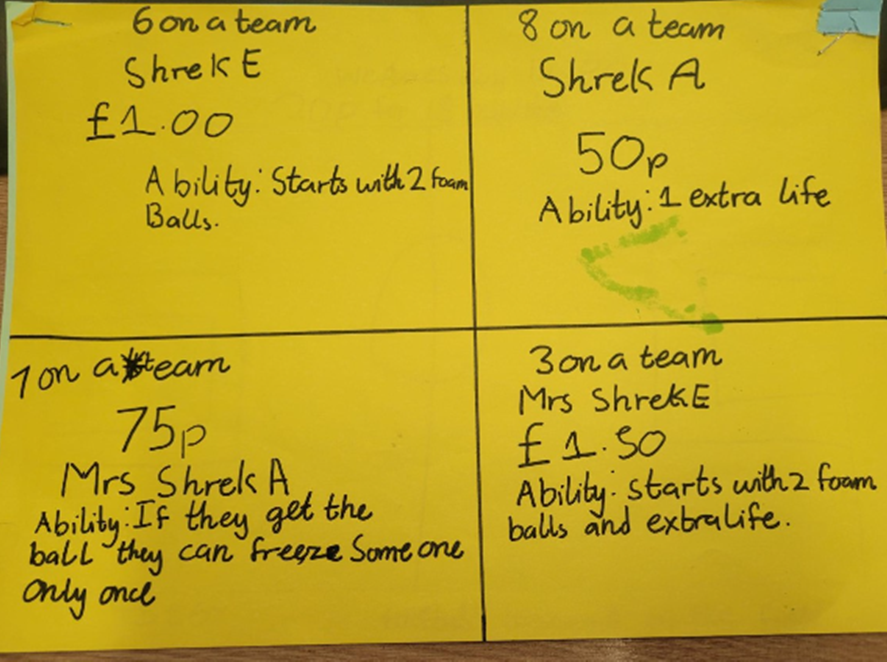 6 on a team
Shrek E
£1.00
Ability: Starts with 2 foam
Balls.
8 on a team
Shrek A
50p
Ability: 1 extra life
7 on a team
75p
Mrs Shrek A
Ability: If they get the
ball they can freeze Someone
only once
3 on a team
Mrs Shrek E
£1.50
Ability: starts with 2 foam
balls and extra life.